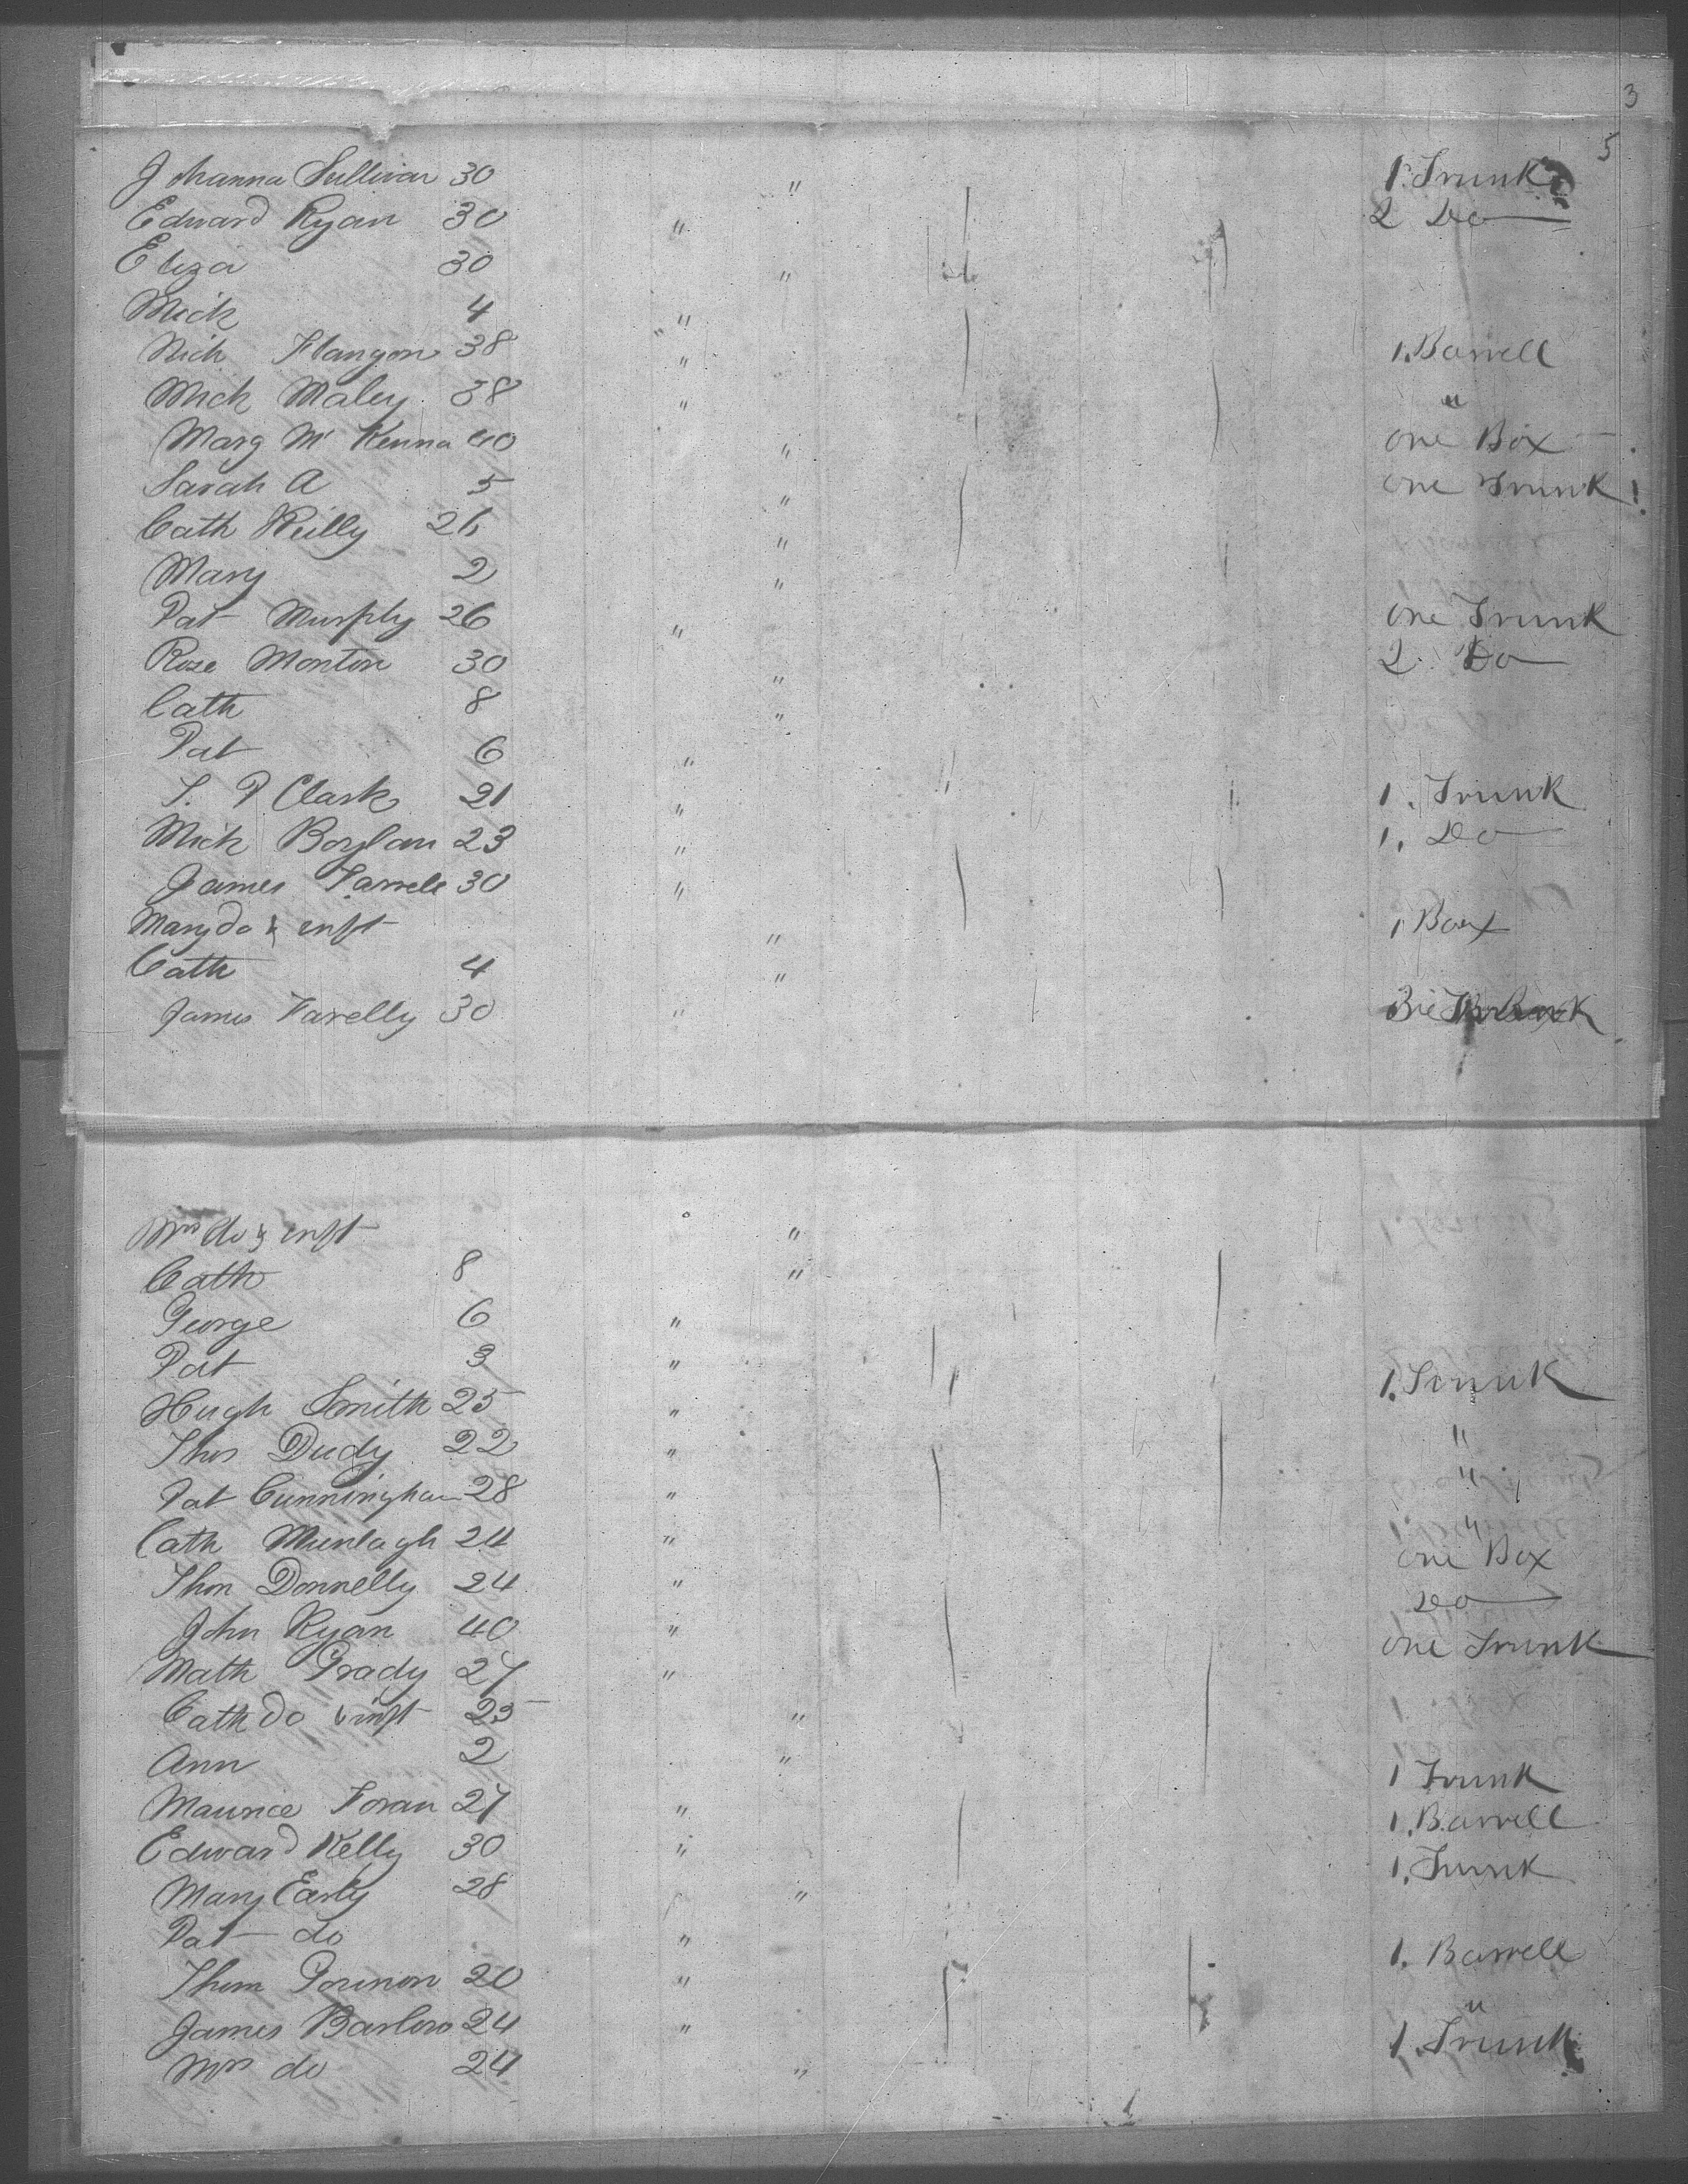 3
5
Johanna Sullivan 30 " 1. Trunk
Edward Ryan 30 " 2 Do
Eliza 30 "
Mick 4 "
Nich Flangon 38 " 1. Barrell
Mick Maley 38 " "
Marg Mc Kenna 40 " one Box
Sarah A 5 " one Trunk
Cath Reilly 26 "
Mary 2 "
Pat Murphy 26 " one Trunk
Rose Monton 30 " 2. Do
Cath 8 "
Pat 6 "
T. P Clark 21 " 1. Trunk
Mick Boylan 23 " 1. Do
James Farrele 30 "
Mary do & inft " 1 Box
Cath 4 "
James Farelly 30 "
Mrs do & inft "
Cath 8 "
George 6 "
Pat 3 " 1. Trunk
Hugh Smith 25 "
Thos Dudy 22 " "
Pat Cunningham 28 " "
Cath Murtagh 24 " "
Thom Donnelly 24 " one Box
John Ryan 40 " Do
Math Grady 27 " one Trunk
Cath do & inft 25 "
Ann 2 "
Maurice Foran 27 " 1 Trunk
Edward Kelly 30 " 1. Barrell
Mary Early 28 " 1. Trunk
Pat do "
Thom 20 " 1. Barrell
James Barlow 24 " "
Mrs do 24 " 1. Trunk